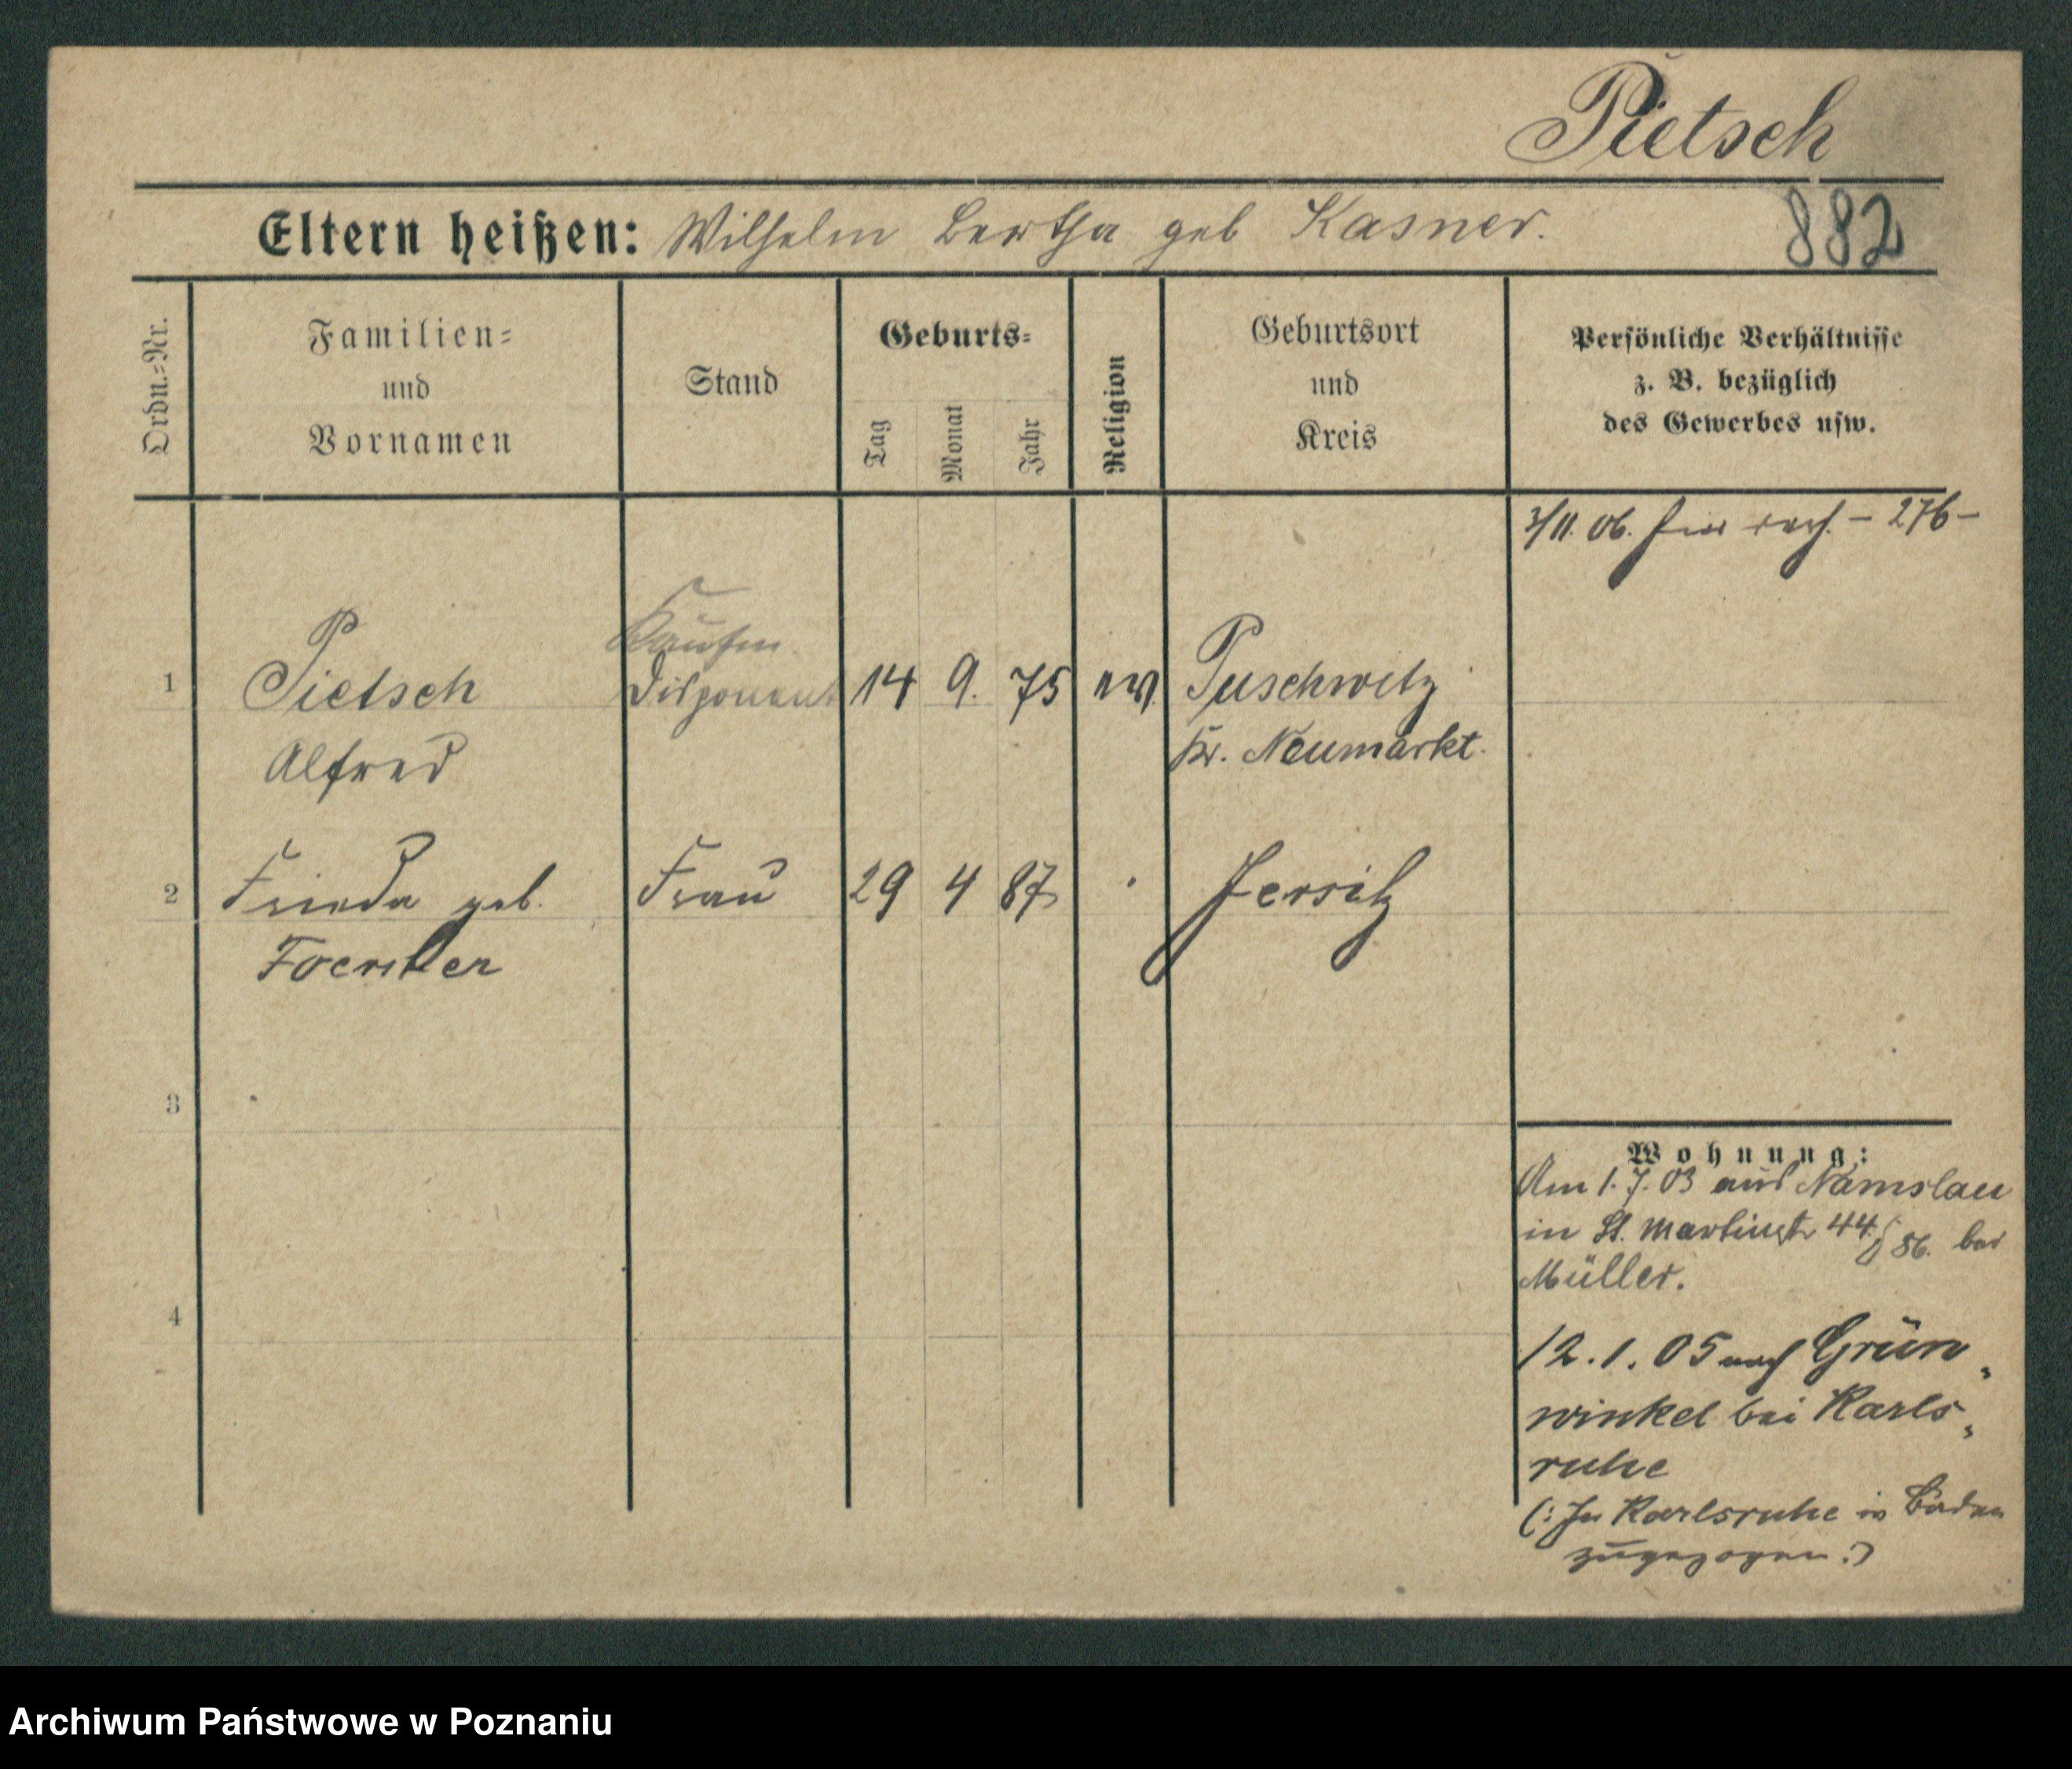 Pietsch
Eltern heißen: Wilhelm Bertha geb Kasner.
882
Ordn.-Nr.
Familien-
und
Vornamen
Stand
Geburts-
Tag
Monat
Jahr
Religion
Geburtsort
und
Kreis
Persönliche Verhältnisse
z. B. bezüglich
des Gewerbes usw.
3/11. 06. – 276 –
1
Pietsch
Alfred
Kaufm.
Disponent
14 9. 75 ev.
Puschwitz
Kr. Neumarkt.
2
Frieda geb.
Foerster
Frau
29 4 87
Jersitz
3
4
Wohnung:
Am 1. 7. 03 aus Namslau
in St. Martinstr 44 bei
Müller.
12. 1. 05 nach Grün„
winkel bei Karls„
ruhe
(: In Karlsruhe in Baden
zugezogen :)
Archiwum Państwowe w Poznaniu